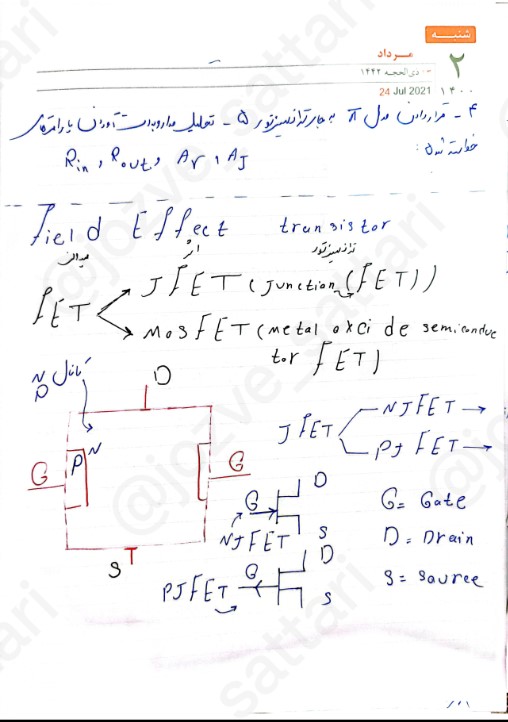 شنبه
مرداد
۲
ذی الحجه ۱۴۴۲
24 Jul 2021 ۱۴۰۰
۴ - قراردادن مدل π به جای ترانزیستور ۵ - تحلیل مدار و بدست آوردن پارامترهای
خواسته شده :
Rin , Rout , Av , AI
Field Effect transistor
میدان اثر ترانزیستور
FET
JFET (Junction (FET))
MosFET (metal oxci de semiconduc
tor FET)
کانال N
P
D
N
P
G
G
S
JFET
NJFET
PJFET
G
D
S
NJFET
G
D
S
PJFET
G = Gate
D = Drain
S = Source
@jozve_sattari